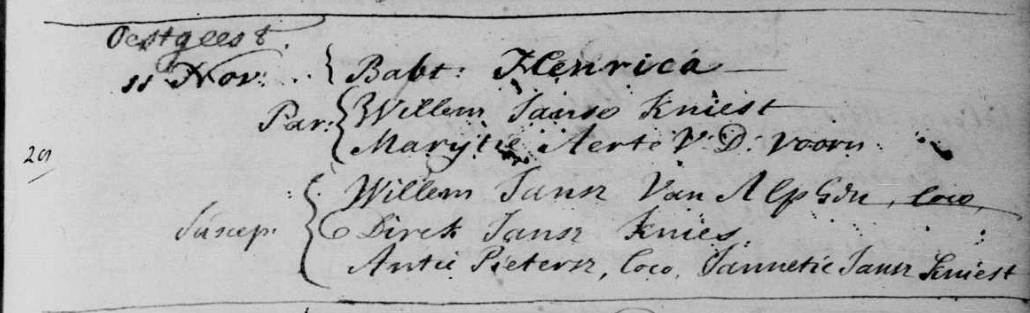 Oestgeest.
11 Nov: .. { Babt: Henrica
Par: { Willem Janse Kniest
Marytie Aerte V: D: Voorn.
29
Willem Jansz Van Alphen, loco,
Suscep. { Dirck Jansz Knies.
Antie Pietersz, loco, Jannetie Jansz Kniest